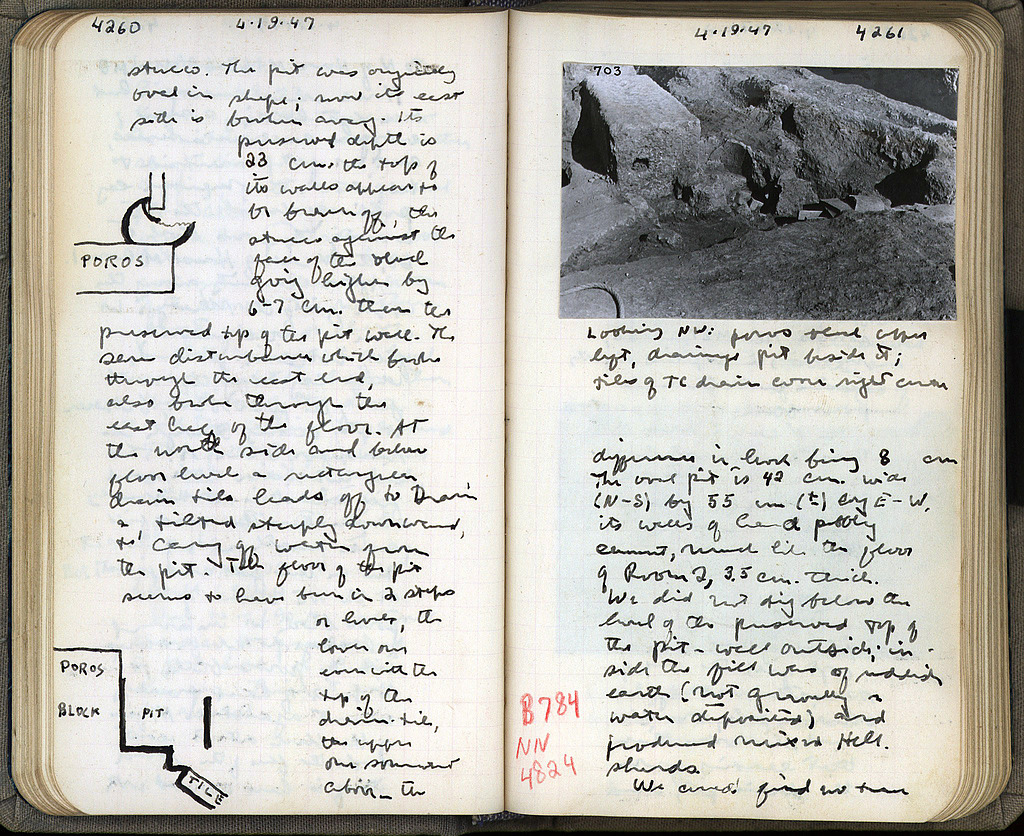 4260 4·19·47
stucco. The pit was originally
oval in shape; now its east
side is broken away. Its
preserved depth is
23 cm. the top of
its walls appear to
be broken off, the
stucco against the
face of the block
going higher by
6-7 cm. than the
POROS
preserved top of the pit wall. The
same disturbance which broke
through the east end,
also broke through the
east half of the floor. At
the north side and below
floor level a rectangular
drain tile leads off to Drain
a, tilted steeply downward,
to carry off water from
the pit. The floor of the pit
seems to have been in 2 steps
or levels, the
lower one
even with the
top of the
drain tile,
the upper
one somewhat
above - the
POROS
BLOCK
PIT
TILE
4·19·47 4261
703
Looking NW: poros block upper
left, drainage pit beside it;
tiles of TC drain lower right
difference in level being 8 cm
The oval pit is 42 cm. wide
(N-S) by 55 cm (±) long E-W,
its walls of hard pebbly
cement, much like the floor
of Room 2, 3.5 cm. thick.
We did not dig below the
level of the preserved top of
the pit-wall outside; in-
side the fill was of reddish
earth (not gravelly or
water deposited) and
produced mixed Hell.
sherds.
We could find no
B784
NN
4824